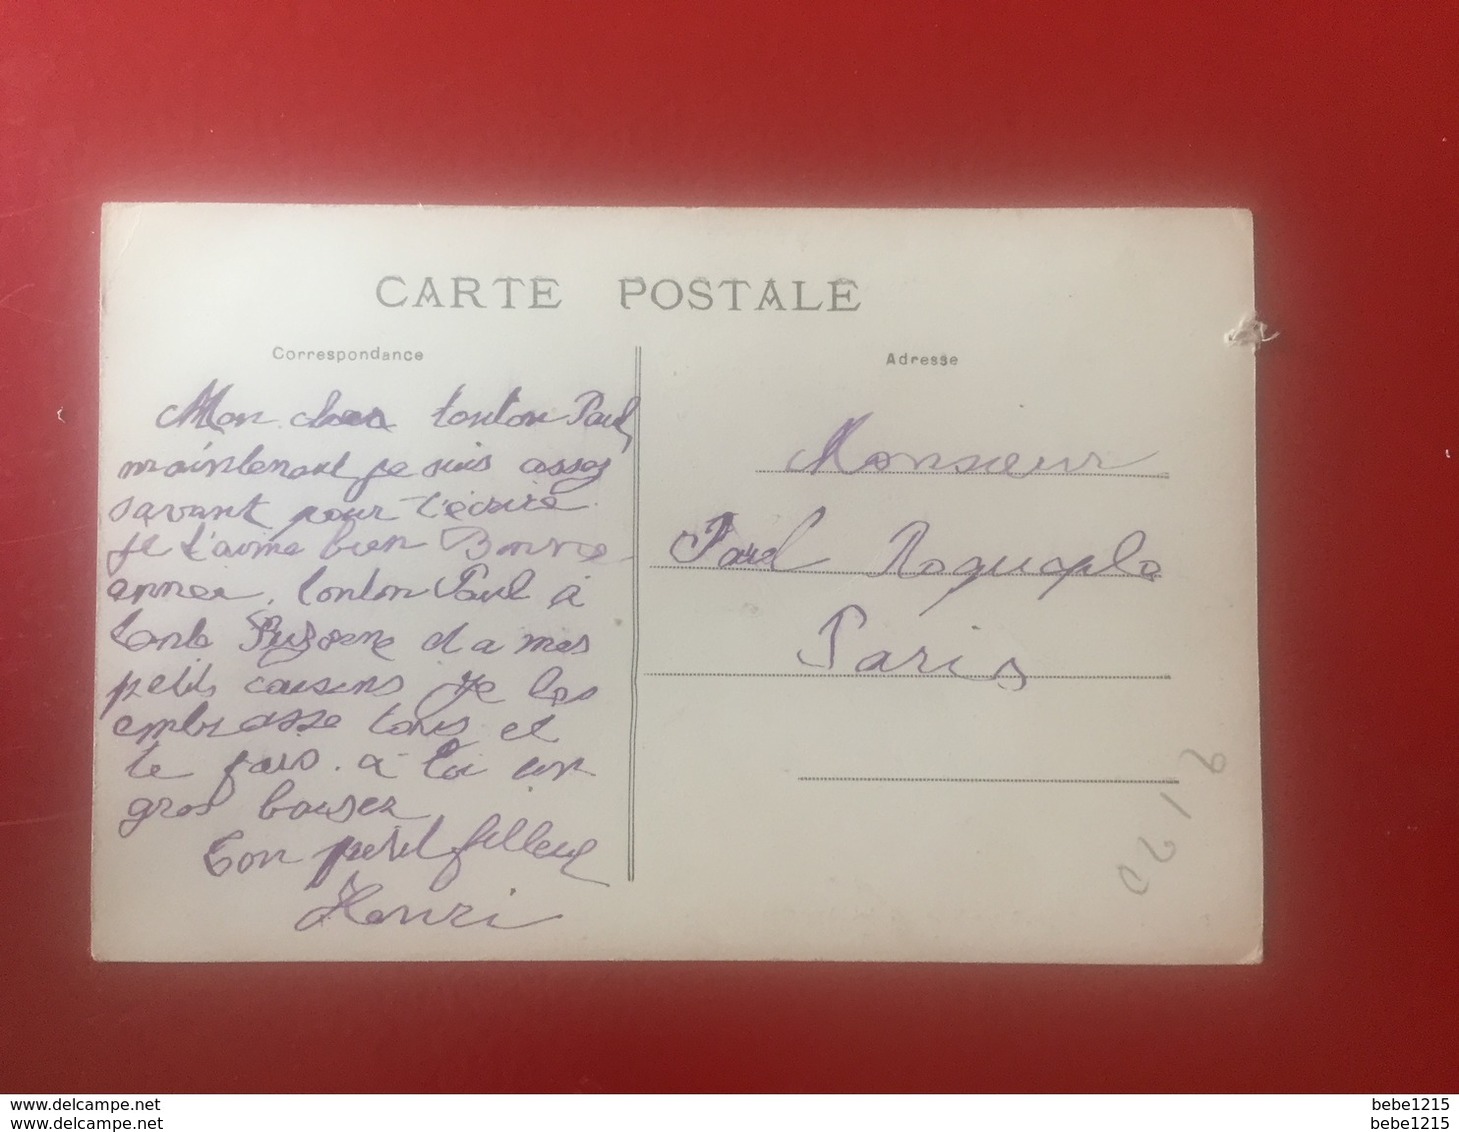 CARTE POSTALE
Correspondance
Mon cher tonton Paul,
maintenant je suis assez
savant pour t'écrire.
je t'aime bien Bonne
annee. tonton Paul à
tante et a mes
petits cousins je les
embrasse tous et
te fais. à toi un
gros baiser
Ton petit filleul
Henri
Adresse
Monsieur
Paul Roquoplo
Paris
www.delcampe.net
www.delcampe.net
bebe1215
bebe1215